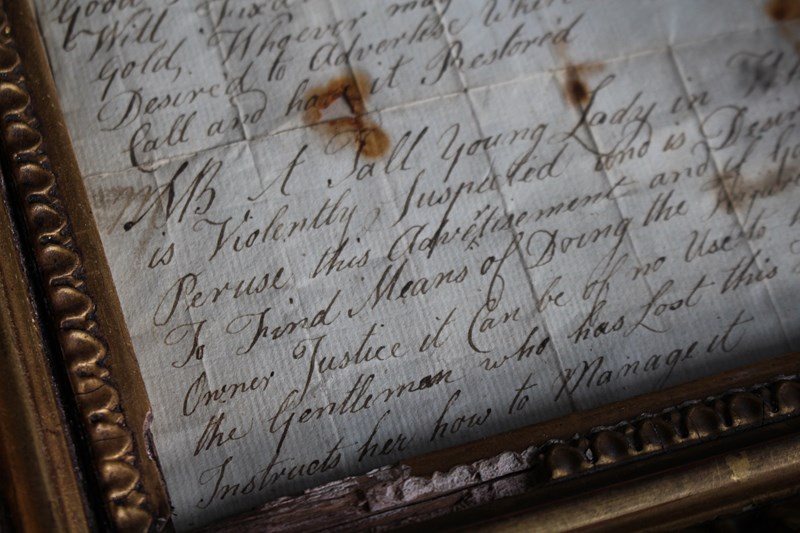 Good
Will Fix a
Gold, Whoever may
Desired to Advertise Where
Call and have it Restored
NB A Tall Young Lady in
is Violently Suspected and is Desir
Peruse this Advertisement and if
To Find Means of Doing the
Owner Justice it Can be of no Use to
the Gentleman who has Lost this
Instructs her how to Manage it